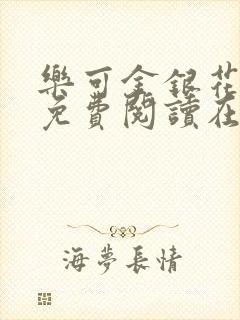 樂可金銀花
免費閱讀在
海夢長情